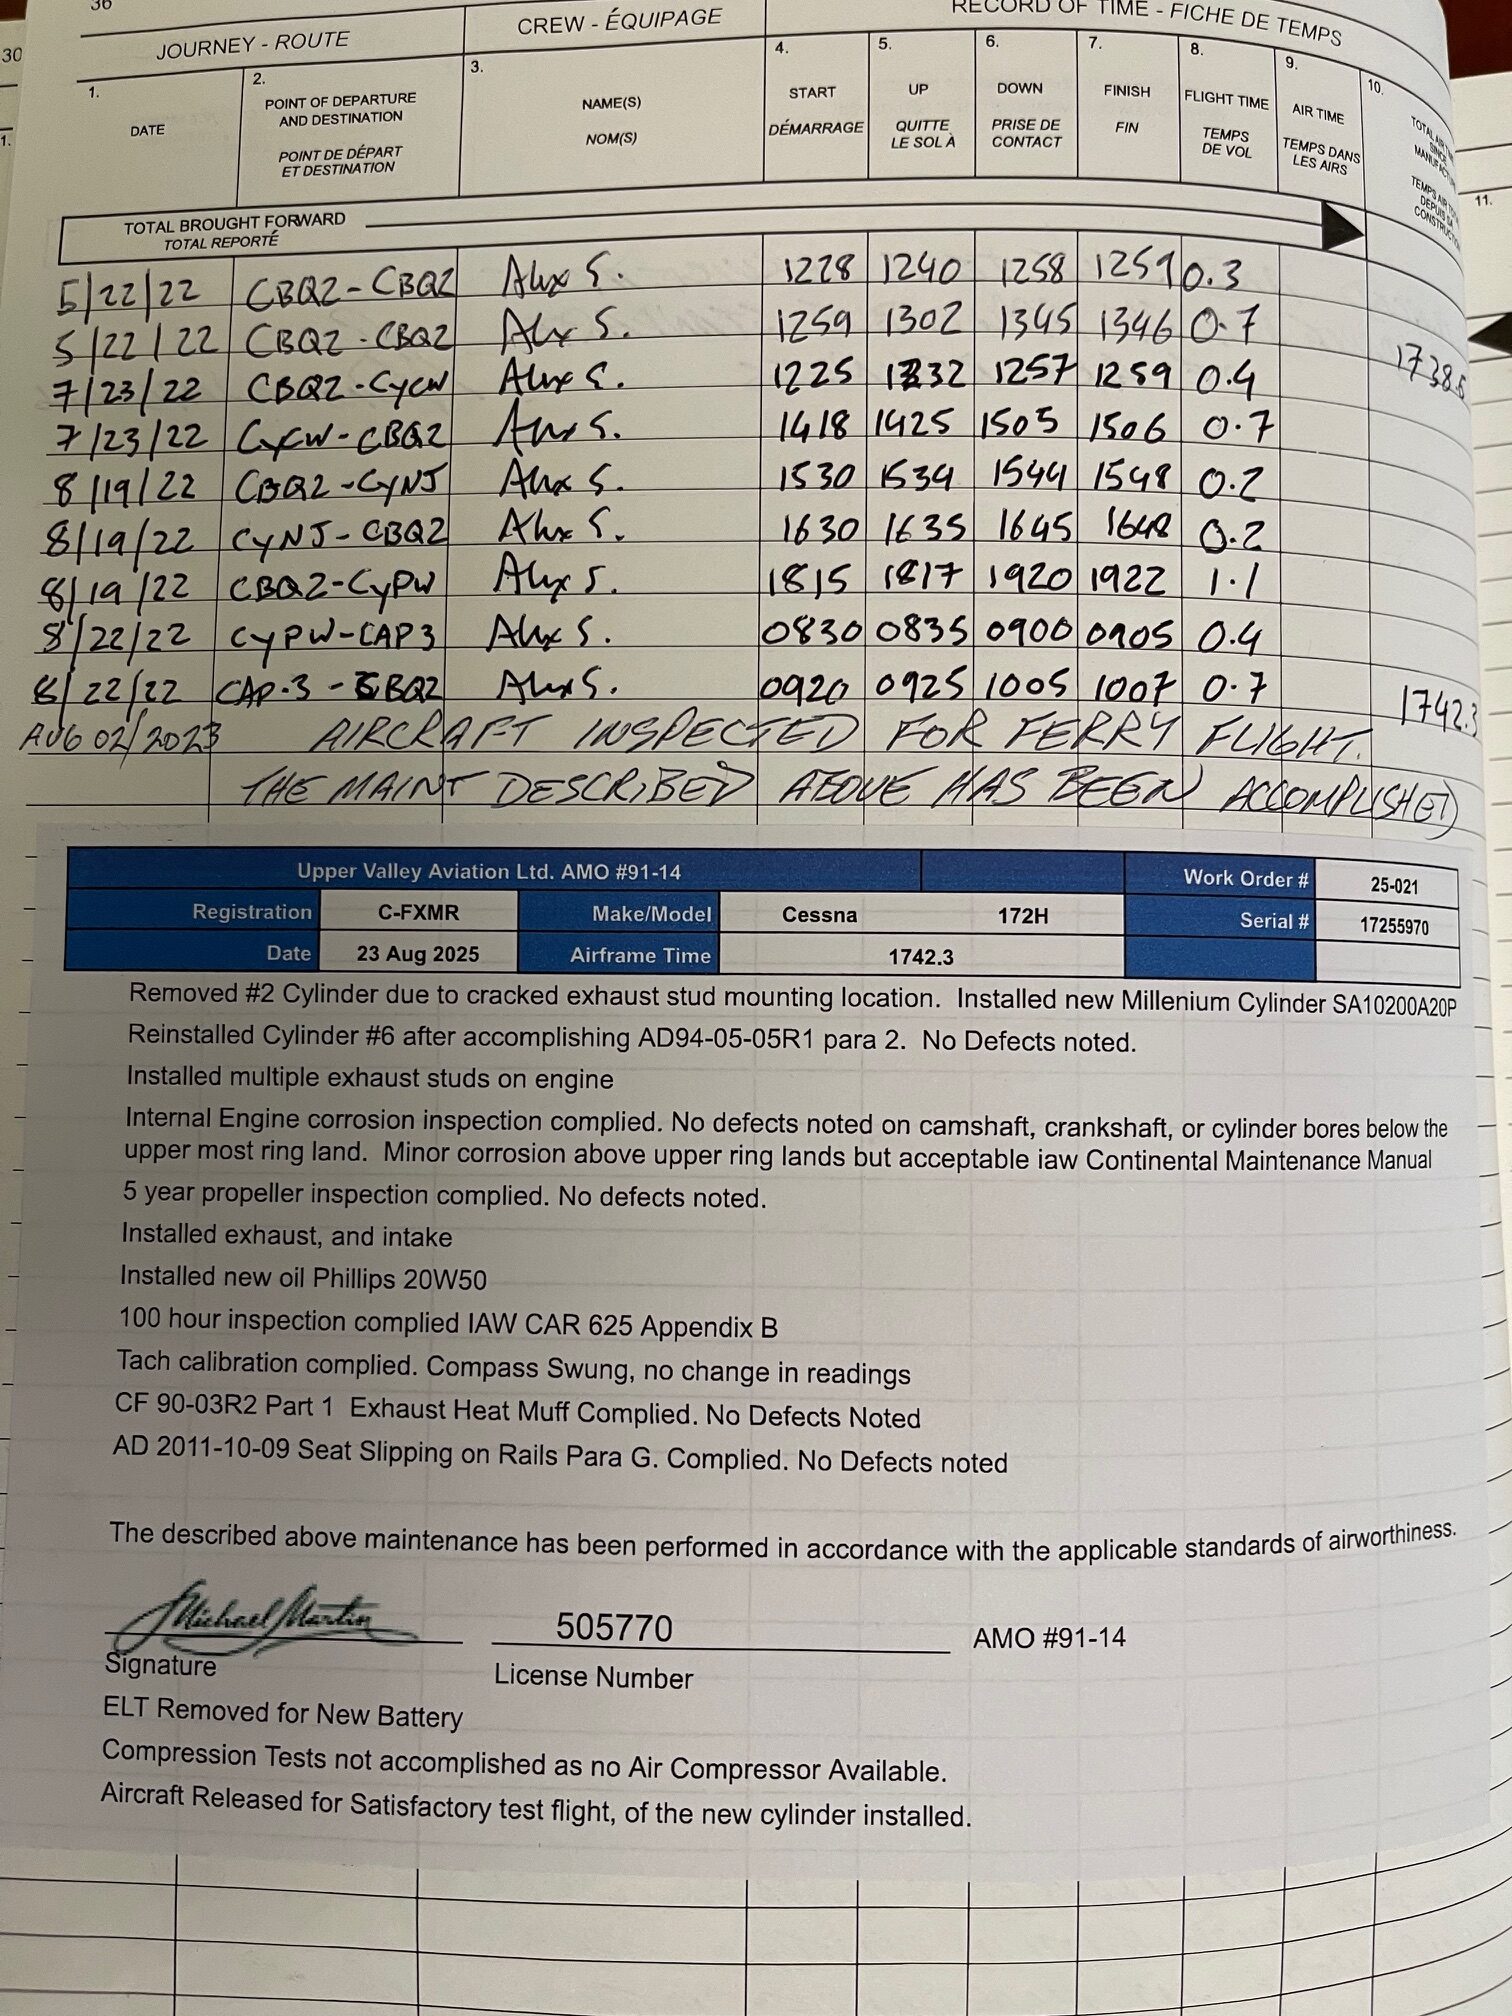 36
JOURNEY - ROUTE
CREW - ÉQUIPAGE
RECORD OF TIME - FICHE DE TEMPS
30
1.
1.
DATE
2.
POINT OF DEPARTURE
AND DESTINATION
POINT DE DÉPART
ET DESTINATION
3.
NAME(S)
NOM(S)
4.
START
DÉMARRAGE
5.
UP
QUITTE
LE SOL À
6.
DOWN
PRISE DE
CONTACT
7.
FINISH
FIN
8.
FLIGHT TIME
TEMPS
DE VOL
9.
AIR TIME
TEMPS DANS
LES AIRS
10.
TOTAL AIR
SINCE
TEMPS AIR
DEPUIS
11.
TOTAL BROUGHT FORWARD
TOTAL REPORTÉ
5/22/22 CBQ2-CBQ2 Alex S. 1228 1240 1258 1259 0.3
5/22/22 CBQ2-CBQ2 Alex S. 1259 1302 1345 1346 0.7 1738.6
7/23/22 CBQ2-CYCW Alex S. 1225 1232 1257 1259 0.4
7/23/22 CYCW-CBQ2 Alex S. 1418 1425 1505 1506 0.7
8/19/22 CBQ2-CYNJ Alex S. 1530 1534 1544 1548 0.2
8/19/22 CYNJ-CBQ2 Alex S. 1630 1635 1645 1648 0.2
8/19/22 CBQ2-CYPW Alex S. 1815 1817 1920 1922 1.1
8/22/22 CYPW-CAP3 Alex S. 0830 0835 0900 0905 0.4
8/22/22 CAP-3-CBQ2 Alex S. 0920 0925 1005 1007 0.7 1742.3
AUG 02/2023 AIRCRAFT INSPECTED FOR FERRY FLIGHT.
THE MAINT DESCRIBED ABOVE HAS BEEN ACCOMPLISHED
Upper Valley Aviation Ltd. AMO #91-14 Work Order # 25-021
Registration C-FXMR Make/Model Cessna 172H Serial # 17255970
Date 23 Aug 2025 Airframe Time 1742.3
Removed #2 Cylinder due to cracked exhaust stud mounting location. Installed new Millenium Cylinder SA10200A20P
Reinstalled Cylinder #6 after accomplishing AD94-05-05R1 para 2. No Defects noted.
Installed multiple exhaust studs on engine
Internal Engine corrosion inspection complied. No defects noted on camshaft, crankshaft, or cylinder bores below the
upper most ring land. Minor corrosion above upper ring lands but acceptable iaw Continental Maintenance Manual
5 year propeller inspection complied. No defects noted.
Installed exhaust, and intake
Installed new oil Phillips 20W50
100 hour inspection complied IAW CAR 625 Appendix B
Tach calibration complied. Compass Swung, no change in readings
CF 90-03R2 Part 1 Exhaust Heat Muff Complied. No Defects Noted
AD 2011-10-09 Seat Slipping on Rails Para G. Complied. No Defects noted
The described above maintenance has been performed in accordance with the applicable standards of airworthiness.
Michael Martin 505770 AMO #91-14
Signature License Number
ELT Removed for New Battery
Compression Tests not accomplished as no Air Compressor Available.
Aircraft Released for Satisfactory test flight, of the new cylinder installed.